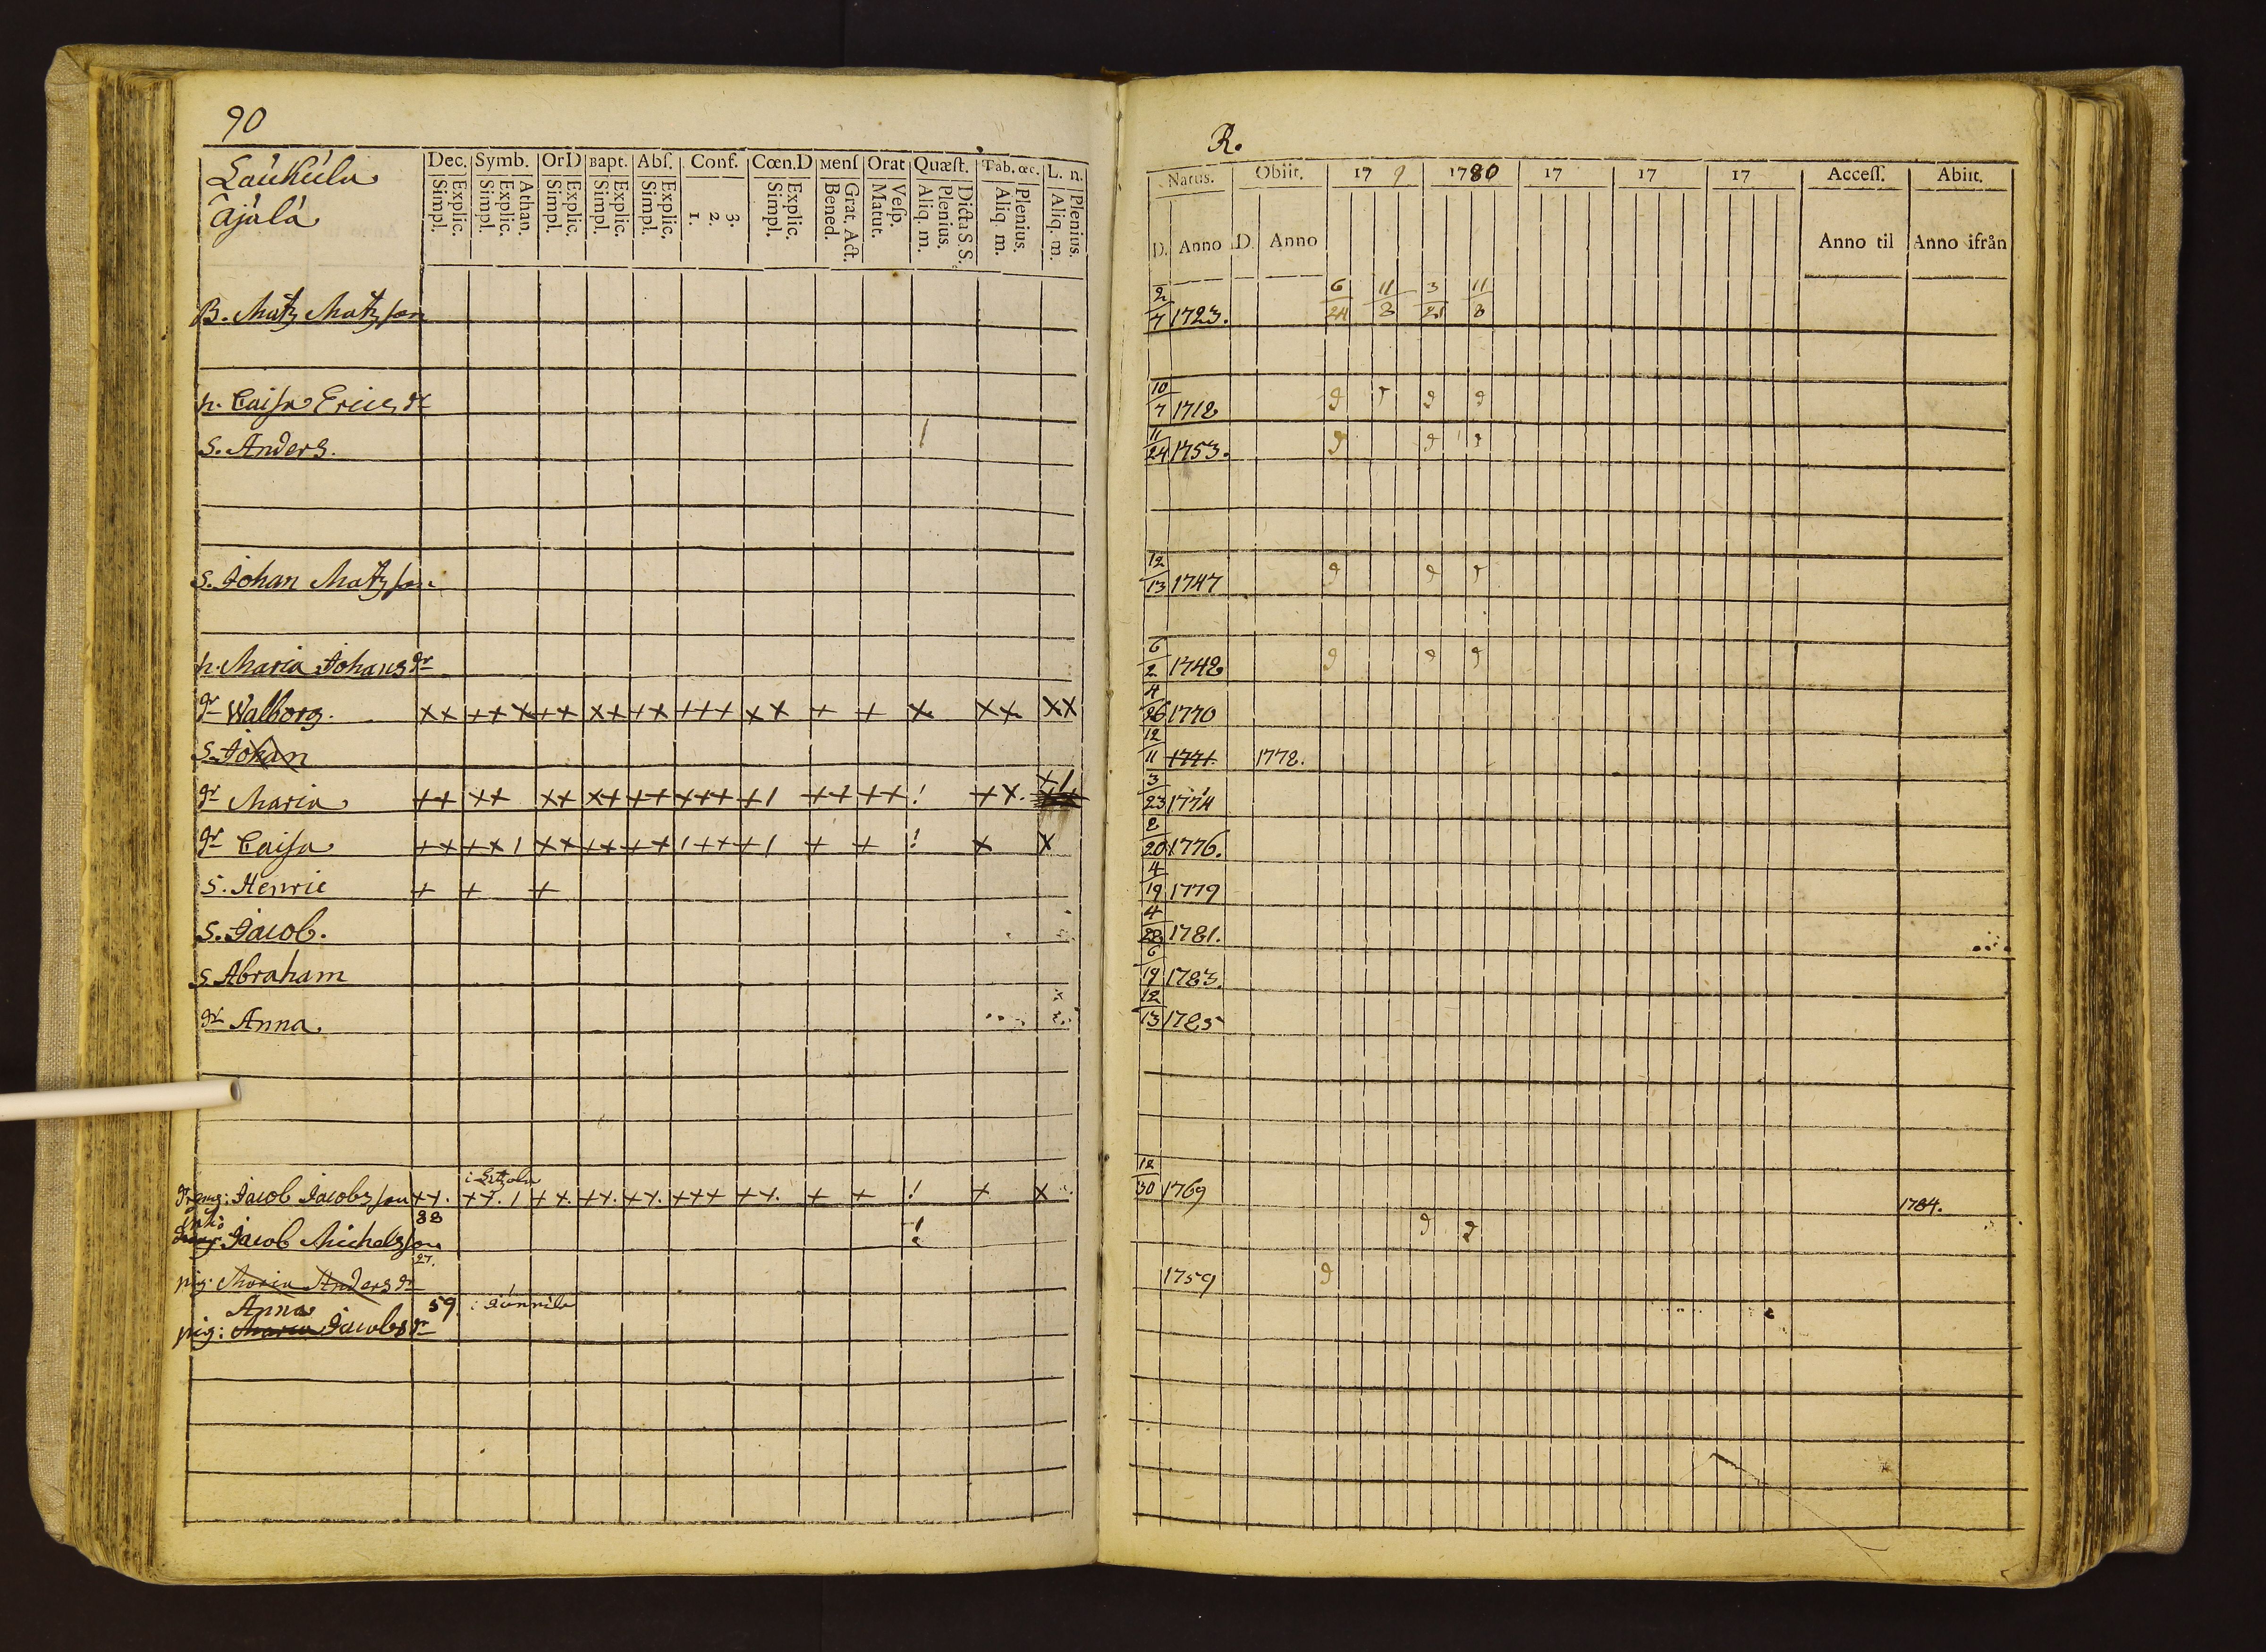 90
Dec. Symb. OrD Bapt. Abſ. Conf. Cœn.D Menſ Orat Quæſt. Tab. œc. L. n.
Simpl. Explic. Simpl. Explic. Athan. Simpl. Explic. Simpl. Explic. Simpl. Explic. 1. 2. 3. Simpl. Explic. Bened. Grat. Act. Matut. Veſp. Aliq. m. Plenius. Dicta S.S. Aliq. m. Plenius. Aliq. m. Plenius.
Laukula
Äjälä
B. Matz Matzson
h. Caisa Erics dr
S. Anders.
S. Johan Matzson
h. Maria Johans dr
dr Walborg. ×× +×× ++ ×× +× +++ ×× + + × ×× ××
S. Johan
dr Maria ++ ×× ×× ×+ ++ +++ +1 ++ ++ ! +×. ×1
dr Caisa ++ +×1 ×× ++ +× 1++ +1 + + ! × ×
S. Henric + + +
S. Jacob.
S. Abraham
dr Anna.
Jacob Jacobsson ++. ++.1 ++. ++. ++. +++ ++. + + ! + ×
38
Jacob Michelsson !
27.
pig: Maria Anders dr
Anna 59.
pig: Maria Jacobs dr
R.
Natus. Obiit. 17 9 1780 17 17 17 Acceſſ. Abiit.
D. Anno D. Anno Anno til Anno ifrån
2/7 1723. 6/24 11/8 3/21 11/8
10/7 1718
11/24 1753.
12/13 1747
6/2 1748
4/26 1770
12/11 1771 1772.
3/23 1774
8/20 1776.
4/19 1779
4/28 1781.
6/19 1783.
12/13 1785
12/30 1769 1784.
1759